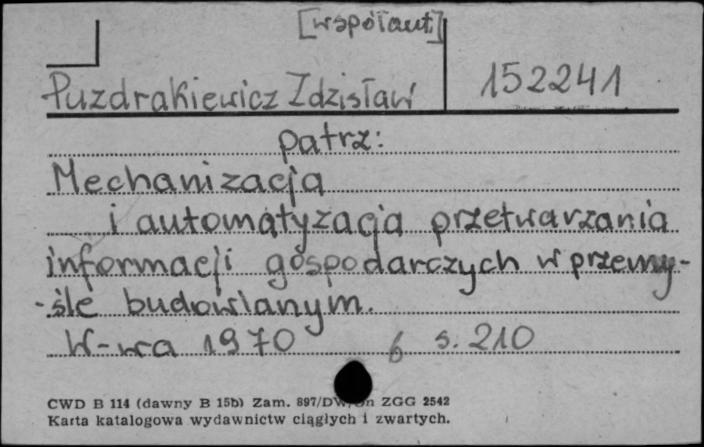 [współaut.]
Puzdrakiewicz Zdzisław 152241
patrz:
Mechanizacja
i automatyzacja przetwarzania
informacji gospodarczych w przemy-
-śle budowlanym.
W-wa 1970 6 s. 210
CWD B 114 (dawny B 15b) Zam. 897/DW/ ZGG 2542
Karta katalogowa wydawnictw ciągłych i zwartych.